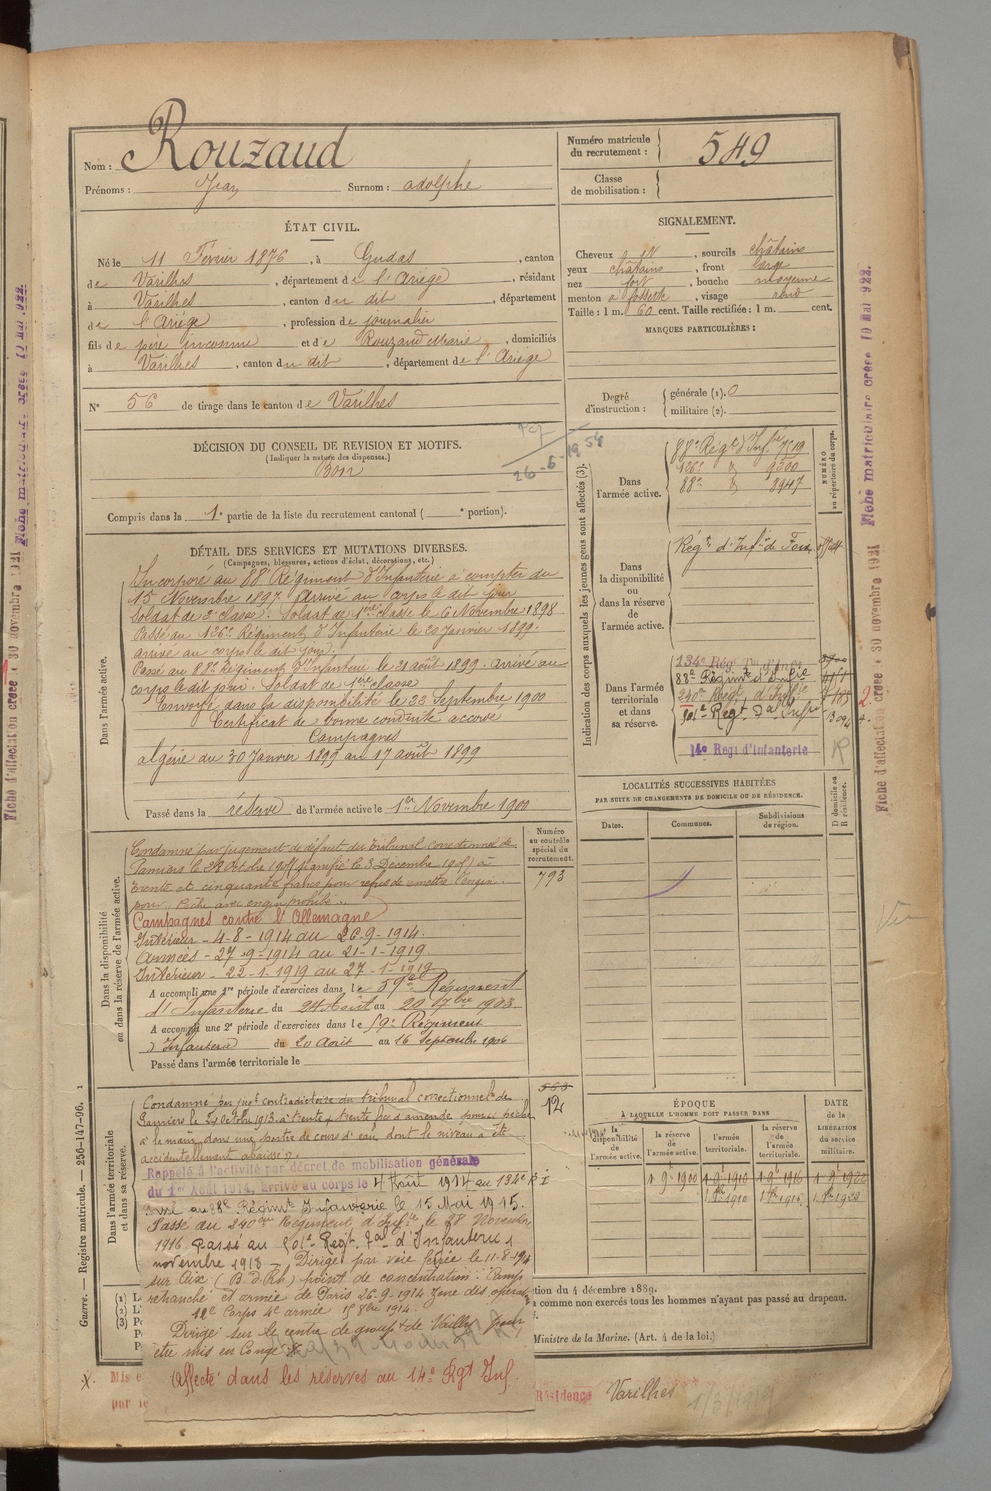 Nom : Rouzaud
Prénoms : Jean Surnom : adolphe
Numéro matricule du recrutement : 549
Classe de mobilisation :
ÉTAT CIVIL.
Né le 11 Février 1876, à Gudas, canton
de Varilhes, département de l'Ariège, résidant
à Varilhes, canton du dit, département
de l'Ariège, profession de journalier
fils de père inconnu et de Rouzaud Marie, domiciliés
à Varilhes, canton du dit, département de l'Ariège
N° 56 de tirage dans le canton de Varilhes
SIGNALEMENT.
Cheveux id, sourcils châtains
yeux châtains, front large
nez fort, bouche moyenne
menton à fossette, visage rond
Taille : 1 m. 60 cent. Taille rectifiée : 1 m. cent.
MARQUES PARTICULIÈRES :
Degré d'instruction : générale (1). 0
militaire (2).
DÉCISION DU CONSEIL DE REVISION ET MOTIFS.
(Indiquer la nature des dispenses.)
Bon
26-6-1954
Compris dans la 1e partie de la liste du recrutement cantonal ( e portion).
Indication des corps auxquels les jeunes gens sont affectés (3).
NUMÉRO au répertoire du corps.
Dans l'armée active.
88e Régt d'Infrie 7519
126e d° 9300
88e d° 8947
Dans la disponibilité ou dans la réserve de l'armée active.
Régt d'Infie de Foix
Dans l'armée territoriale et dans sa réserve.
134e Rég.
88e Régimt d'Infie
240e Regt d'Infie
501e Regt
14e Regt d'Infanterie
DÉTAIL DES SERVICES ET MUTATIONS DIVERSES.
(Campagnes, blessures, actions d'éclat, décorations, etc.)
Dans l'armée active.
Incorporé au 88e Régiment d'Infanterie à compter du
15 Novembre 1897. Arrivé au corps le dit jour
soldat de 2e classe. Soldat de 1ère classe le 6 Novembre 1898
Passé au 126e Régiment d'Infanterie le 20 Janvier 1899.
arrivé au corps le dit jour.
Passé au 88e Régiment d'Infanterie le 21 août 1899. Arrivé au
corps le dit jour. Soldat de 1ère classe
Envoyé dans la disponibilité le 22 Septembre 1900
Certificat de bonne conduite accordé
Campagnes
algérie du 30 Janvier 1899 au 17 août 1899
Passé dans la réserve de l'armée active le 1er Novembre 1900
LOCALITÉS SUCCESSIVES HABITÉES
PAR SUITE DE CHANGEMENTS DE DOMICILE OU DE RÉSIDENCE.
D domicile ou R résidence.
Dates. Communes. Subdivisions de région.
Dans la disponibilité ou dans la réserve de l'armée active.
Numéro au contrôle spécial du recrutement.
793
Condamné par jugement de défaut du tribunal correctionnel de
Pamiers le 28 Octobre 190 (signifié le 3 Décembre 190 ) à
trente et cinquante francs pour refus de
pour "Pêche avec engin prohibé".
Campagnes contre l'Allemagne
Intérieur - 4-8-1914 au 26-9-1914.
Armées - 27-9-1914 au 21-1-1919
Intérieur - 22-1-1919 au 27-1-1919
A accompli une 1re période d'exercices dans le 59e Régiment
d'Infanterie du 24 Août au 20 7bre 1903
A accompli une 2e période d'exercices dans le 59e Régiment
d'Infanterie du 20 Août au 16 Septembre 1906
Passé dans l'armée territoriale le
Dans l'armée territoriale et dans sa réserve.
563
12
Condamné par jugt contradictoire du tribunal correctionnel de
Pamiers le 24 Octobre 1913 à trente & trente frs d'amende pour pêche
à la main dans une partie de cours d'eau dont le niveau a été
accidentellement abaissé.
Rappelé à l'activité par décret de mobilisation générale
du 1er Août 1914, arrivé au corps le 4 Août 1914 au 134e R I
Passé au 88e Régimt Infanterie le 15 Mai 1915.
Passé au 240e Régiment d'Infie le 28 Novembre
1916 Passé au 501e Régt d'Infanterie
novembre 1918 - Dirigé par voie ferrée le 11-8-1914
sur Aix (B.d.Rh) point de concentration : Camp
retranché et armée de Paris 26-9-1914 zone des opérations
12e Corps 4e armée 1 8bre 1914.
Dirigé sur le centre de groupt de Vailly pour
être mis en Congé
Affecté dans les réserves au 14e Rgt Inf.
ÉPOQUE
À LAQUELLE L'HOMME DOIT PASSER DANS
la disponibilité de l'armée active. la réserve de l'armée active. l'armée territoriale. la réserve de l'armée territoriale.
DATE de la LIBÉRATION du service militaire.
1 9bre 1900 1 9bre 1910 1 9bre 1916 1 9bre 1922
1 8bre 1910 1 8bre 1916 1 8bre 1922
tion du 4 décembre 1889.
comme non exercés tous les hommes n'ayant pas passé au drapeau.
Ministre de la Marine. (Art. 4 de la loi.)
Résidence Varilhes
1/3/1919
Guerre. — Registre matricule. — 256-147-96.
Fiche d'affectation créée 30 novembre 1921
Fiche matriculaire créée 10 Mai 1922.